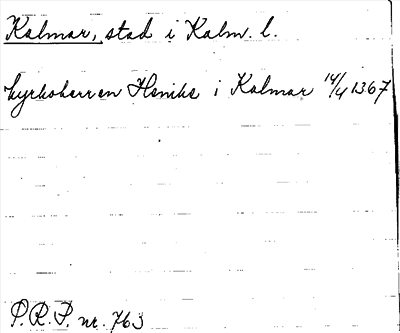 Kalmar, stad i Kalm. l.
kyrkoherren Heniks i Kalmar 14/4 1367
P.R.P. nr. 763